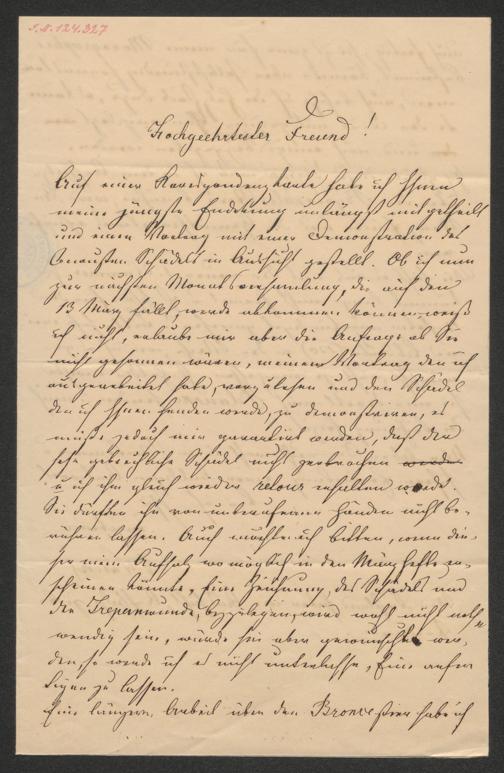 J.N. 124.327
Hochgeehrtester Freund!
Auf einer Korrespondenzkarte habe ich Ihnen
meine jüngste Entdekung unlängst mitgetheilt
und einen Vortrag mit einer Demonstration des
Schädels in Aussicht gestellt. Ob ich nun
zur nächsten Monatsversammlung, die auf den
13 März fällt, werde abkommen können, weiß
ich nicht, erlaube mir aber die Anfrage ob Sie
nicht gesonnen wären, meinem Vortrag den ich
ausgearbeitet habe, vorzulesen und den Schädel
den ich Ihnen senden werde, zu demonstriren, es
müßte jedoch mir garantirt werden, daß der
sehr gebrechliche Schädel nicht zerbrochen werde
u ich ihn gleich wieder retour erhalten werde.
Sie dürften ihn von unberufenen Händen nicht be-
rühren lassen. Auch möchte ich bitten, wenn die-
ser mein Aufsatz womöglich in den Märzhefte er-
scheinen könnte, Eine Zeichnung, des Schädels und
der Trepanwunde, beyzulegen, wird wohl nicht noth-
wendig sein, würde sie aber gewünscht wer-
den, so werde ich es nicht unterlassen, Eine anfer-
tigen zu lassen.
Eine längere Arbeit über den Broncestier habe ich